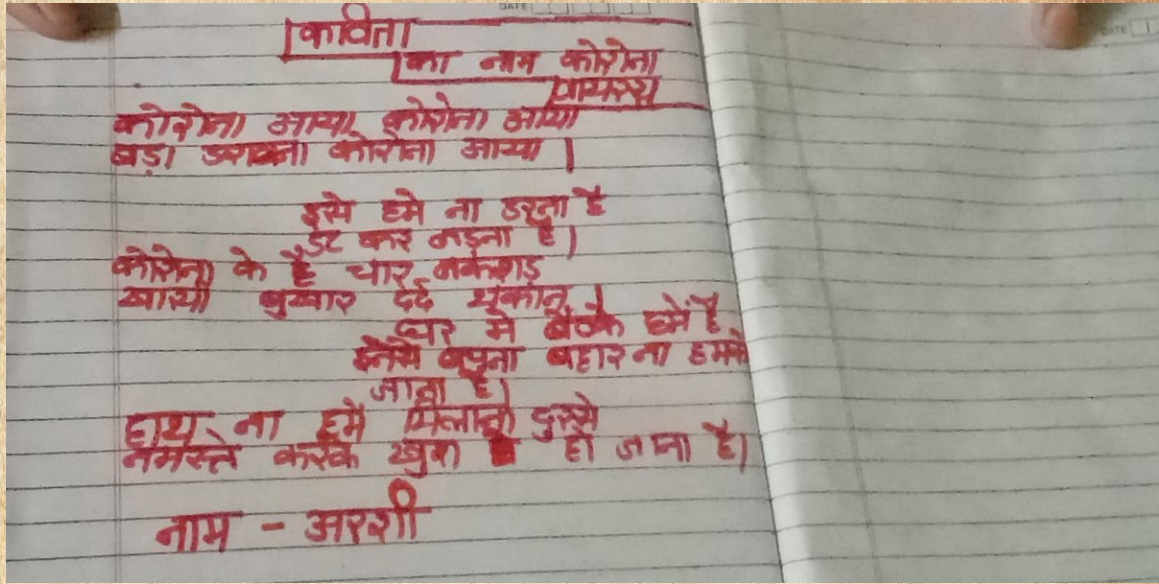 कविता
का नाम कोरोना
वायरस
कोरोना आया कोरोना आया
बड़ा डरावना कोरोना आया |
इसे हमे ना डरना है
डट कर लड़ना है|
कोरोना के है चार
खासी बुखार दर्द थकान |
घर मे बैठके हमें है
इनसे बचना बहार ना हमको
जाना है|
हाथ ना हमें मिलाना दुरसे
नमस्ते करके खुश हो जाना है|
नाम - अरशी
DATE
DATE